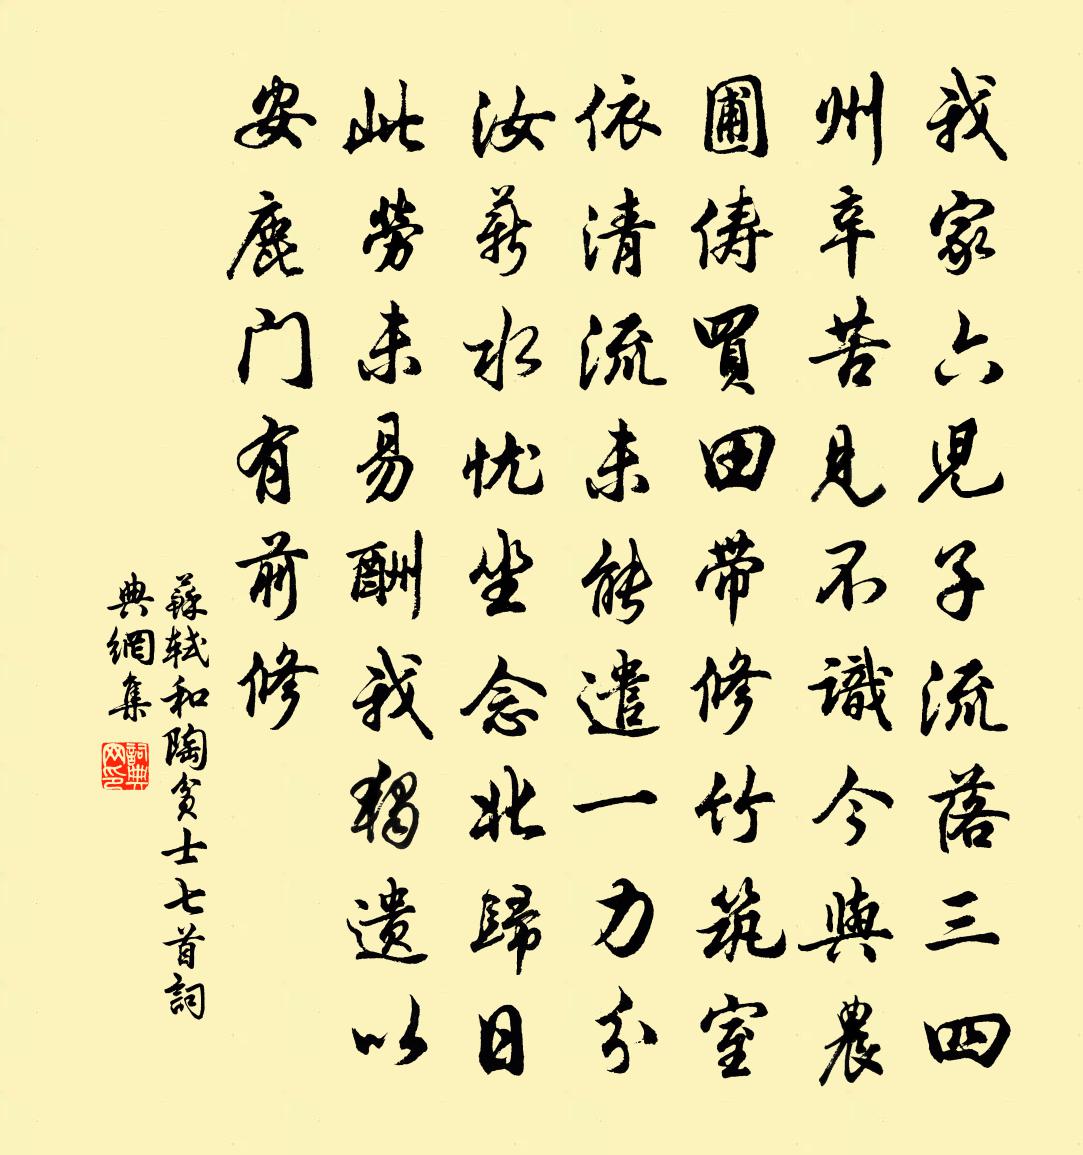 我家六児子流落三四
州辛苦見不識今與農
圃俦買田带修竹筑室
依清流未能遣一力分
汝薪水忧坐念北歸日
此勞未易酬我獨遺以
安鹿门有前修
蘇轼和陶贫士七首詞
典網集
詞典网印